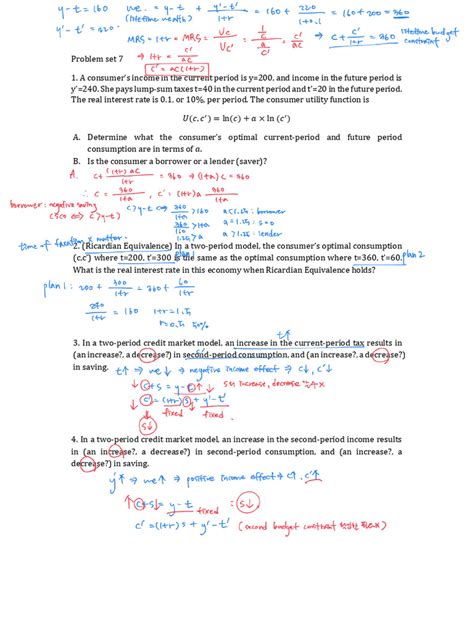 y-t=160 we = y-t + y'-t'/1+r = 160 + 220/1+0.1 = 160+200=360
(lifetime wealth)
y'-t'=220
MRS = 1+r ⇒ MRS = Uc/Uc' = 1/c / a/c' = c'/ac ⇒ c + c'/1+r = 360 lifetime budget constraint
Problem set 7 ⇒ 1+r = c'/ac
c' = ac(1+r)
1. A consumer's income in the current period is y=200, and income in the future period is
y'=240. She pays lump-sum taxes t=40 in the current period and t'=20 in the future period.
The real interest rate is 0.1, or 10%, per period. The consumer utility function is
U(c, c') = ln(c) + α × ln (c')
A. Determine what the consumer's optimal current-period and future period
consumption are in terms of α.
B. Is the consumer a borrower or a lender (saver)?
A. c + (1+r)ac/1+r = 360 ⇒ (1+a)c = 360
∴ c = 360/1+a, c' = (1+r)a 360/1+a
borrower: negative saving
(s<0 ⇔ c>y-t)
c>y-t ⇔ 360/1+a > 160 a<1.25: borrower
⇔ 360/160 > 1+a a=1.25: s=0
1.25 > a a>1.25: lender
time of taxation X matter
2. (Ricardian Equivalence) In a two-period model, the consumer's optimal consumption
(c,c') where t=200, t'=300 is the same as the optimal consumption where t=360, t'=60. plan 2
What is the real interest rate in this economy when Ricardian Equivalence holds?
plan 1: 200 + 300/1+r = 360 + 60/1+r
240/1+r = 160 1+r=1.5
r=0.5, 50%
t↑
3. In a two-period credit market model, an increase in the current-period tax results in
(an increase?, a decrease?) in second-period consumption, and (an increase?, a decrease?)
in saving.
t↑ ⇒ we↓ ⇒ negative income effect ⇒ c↓, c'↓
↓ c+s = y-t↑↓
↓ c' = (1+r)s + y'-t'
fixed fixed
s↓
4. In a two-period credit market model, an increase in the second-period income results
in (an increase?, a decrease?) in second-period consumption, and (an increase?, a
decrease?) in saving.
y'↑ ⇒ we↑ ⇒ positive income effect ⇒ c↑, c'↑
↑ c+s = y-t : s↓
fixed
c' = (1+r)s + y'-t' (second budget constraint